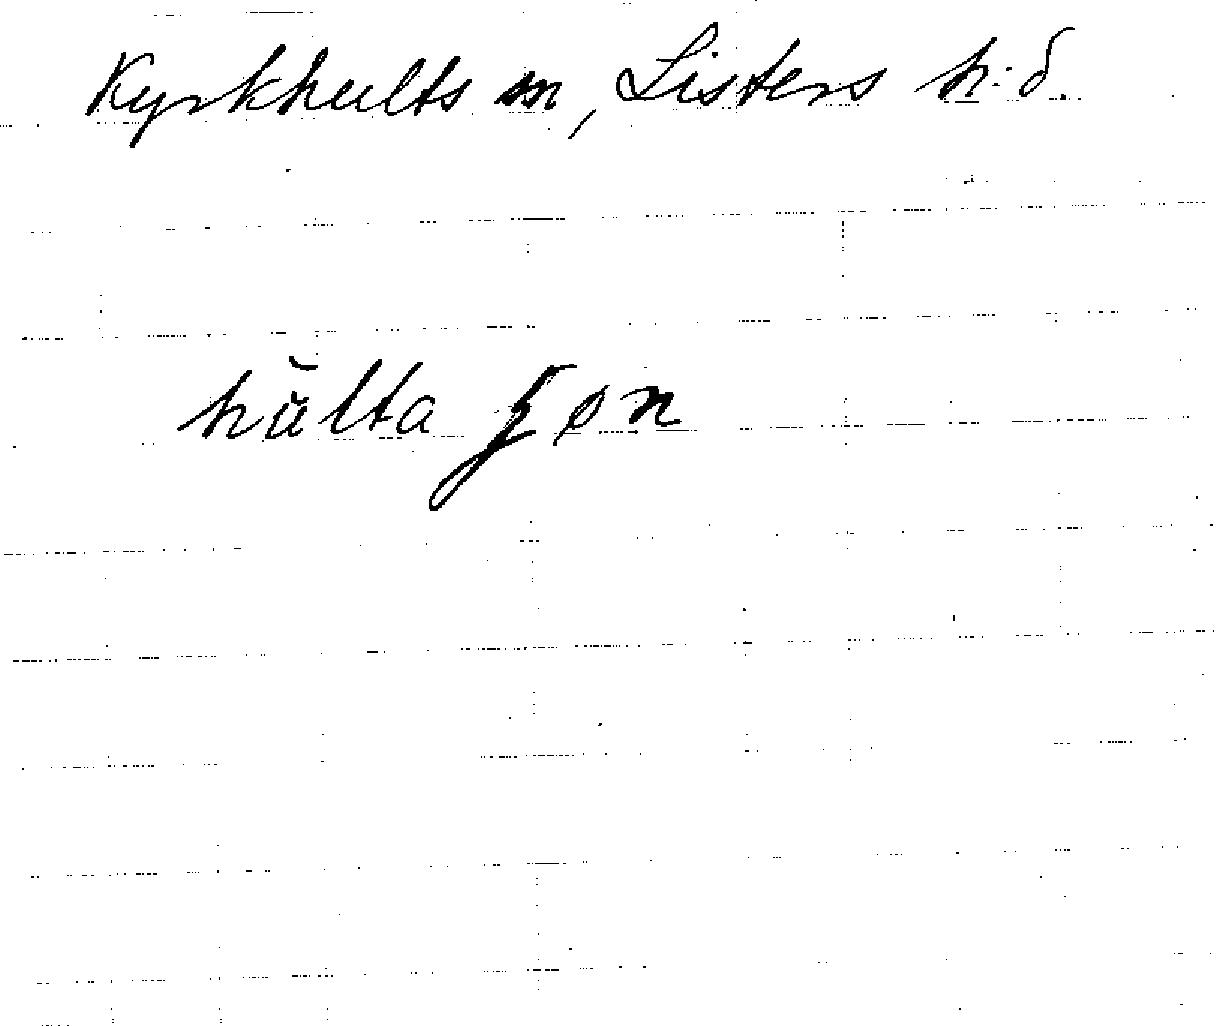 Kyrkhults sn, Listers h:d.
hùlta ʃøn